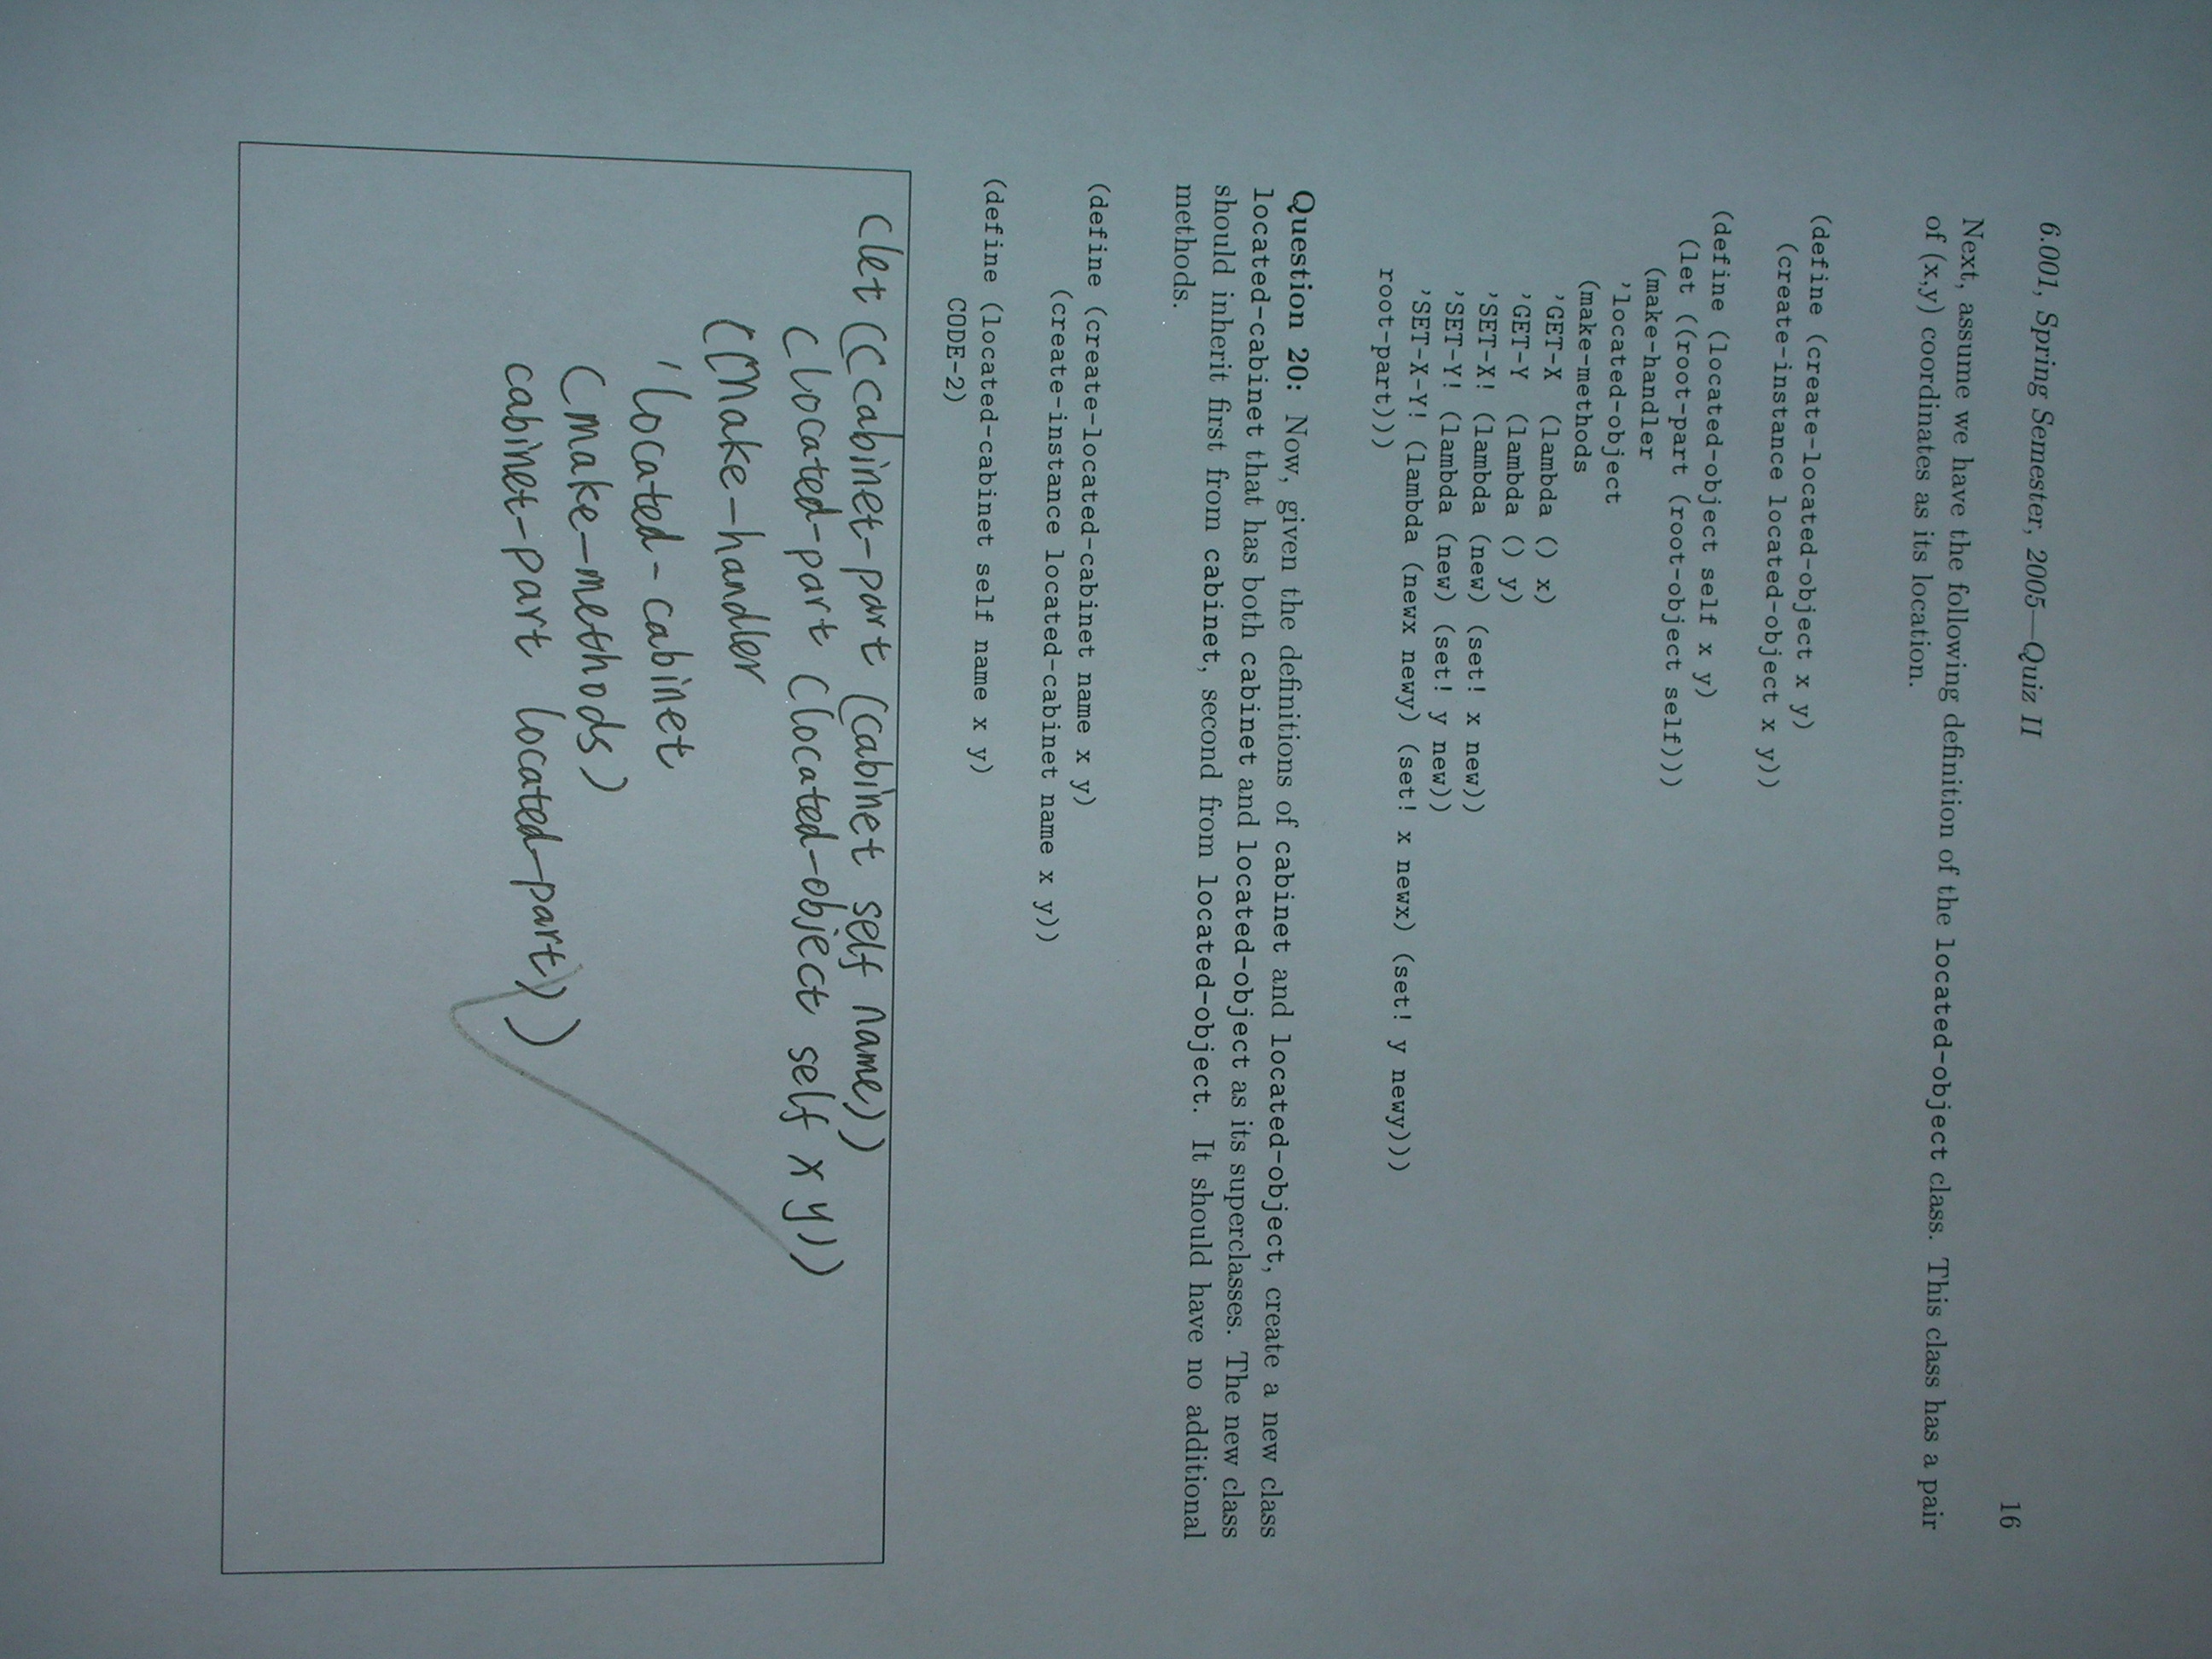 6.001, Spring Semester, 2005—Quiz II 16
Next, assume we have the following definition of the located-object class. This class has a pair
of (x,y) coordinates as its location.
(define (create-located-object x y)
(create-instance located-object x y))
(define (located-object self x y)
(let ((root-part (root-object self)))
(make-handler
'located-object
(make-methods
'GET-X (lambda () x)
'GET-Y (lambda () y)
'SET-X! (lambda (new) (set! x new))
'SET-Y! (lambda (new) (set! y new))
'SET-X-Y! (lambda (newx newy) (set! x newx) (set! y newy)))
root-part)))
Question 20: Now, given the definitions of cabinet and located-object, create a new class
located-cabinet that has both cabinet and located-object as its superclasses. The new class
should inherit first from cabinet, second from located-object. It should have no additional
methods.
(define (create-located-cabinet name x y)
(create-instance located-cabinet name x y))
(define (located-cabinet self name x y)
CODE-2)
(let ((cabinet-part (cabinet self name))
(located-part (located-object self x y))
(make-handler
'located-cabinet
(make-methods)
cabinet-part located-part))